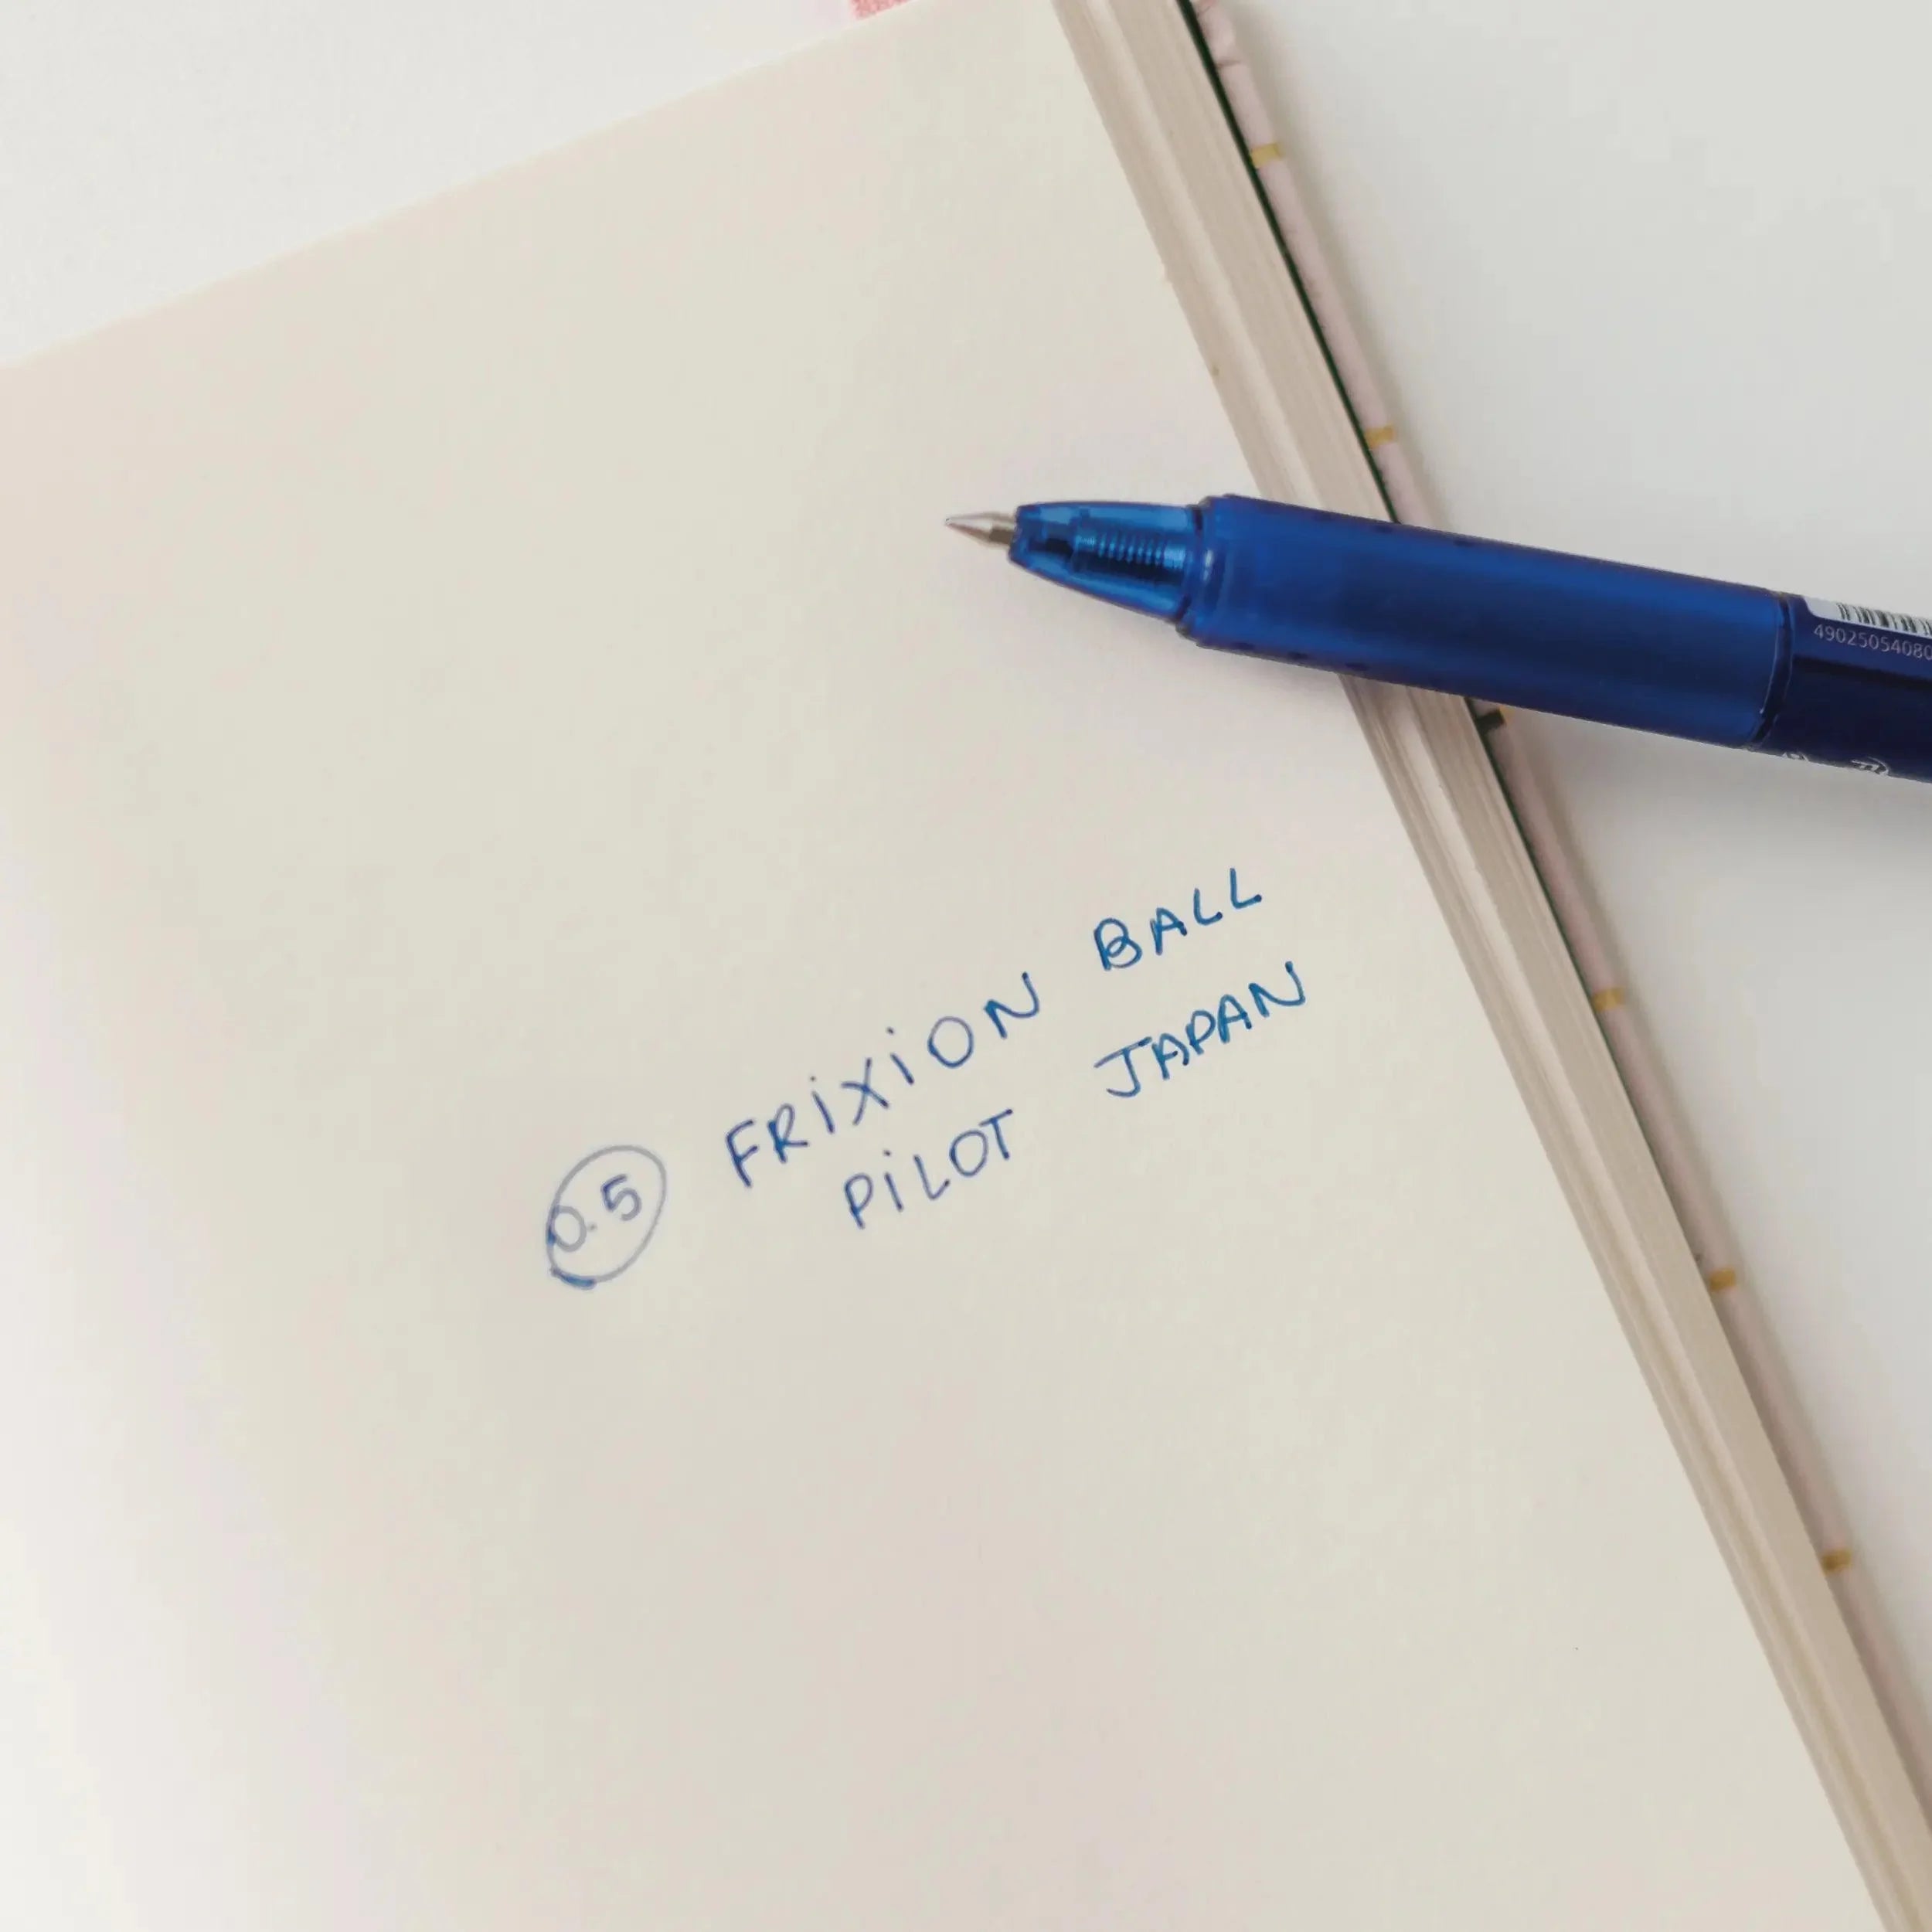 4902505408
0.5 FRiXiON BALL
PiLOT JAPAN